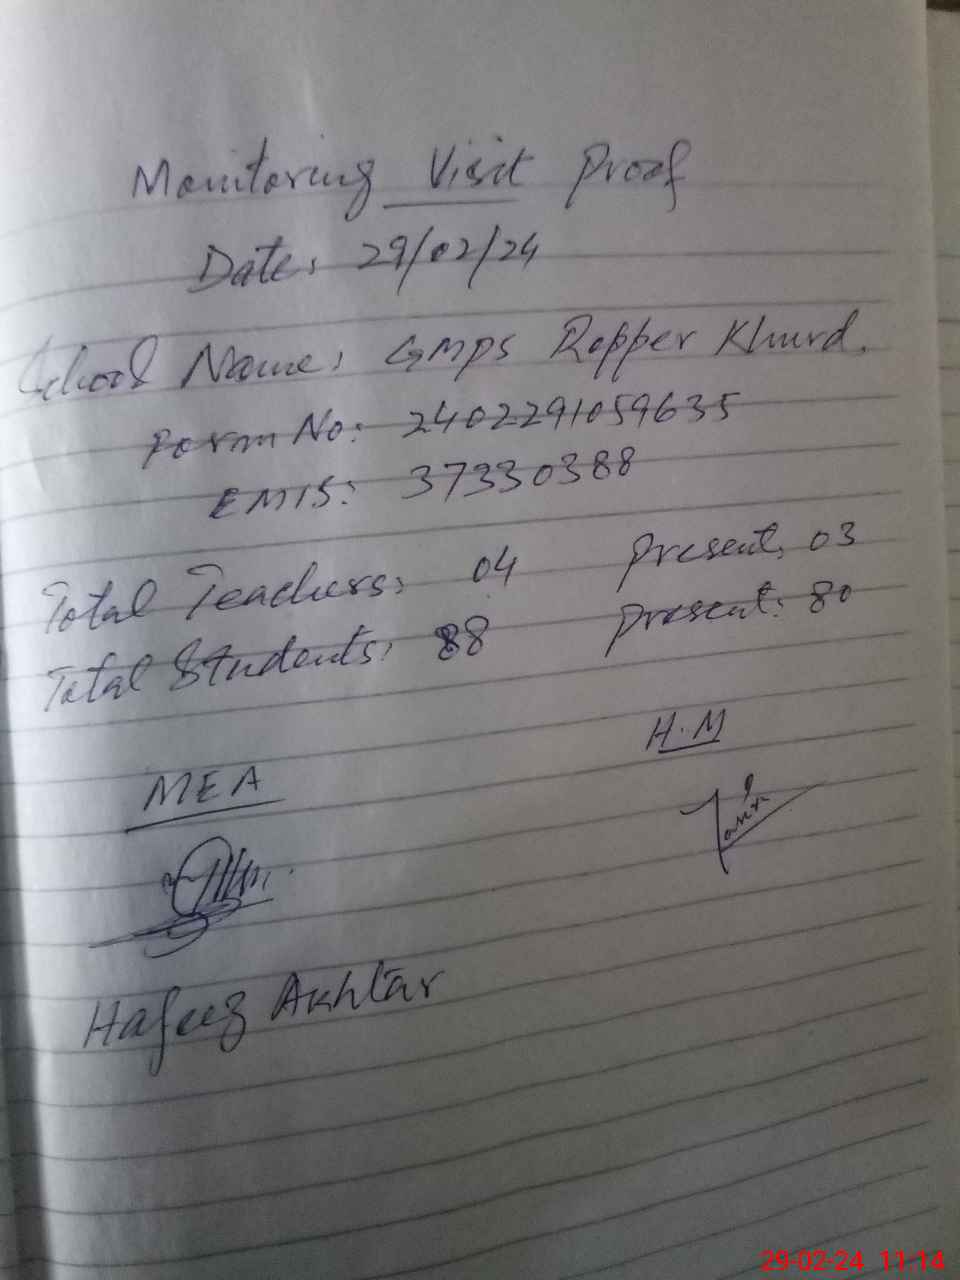 Monitoring Visit Proof
Date: 29/02/24
School Name: GMPS Ropper Khurd.
Form No: 2402291059635
EMIS: 37330388
Total Teachers: 04 Present: 03
Total Students: 88 Present: 80
H.M
MEA
Hafeez Akhtar
29-02-24 11:14